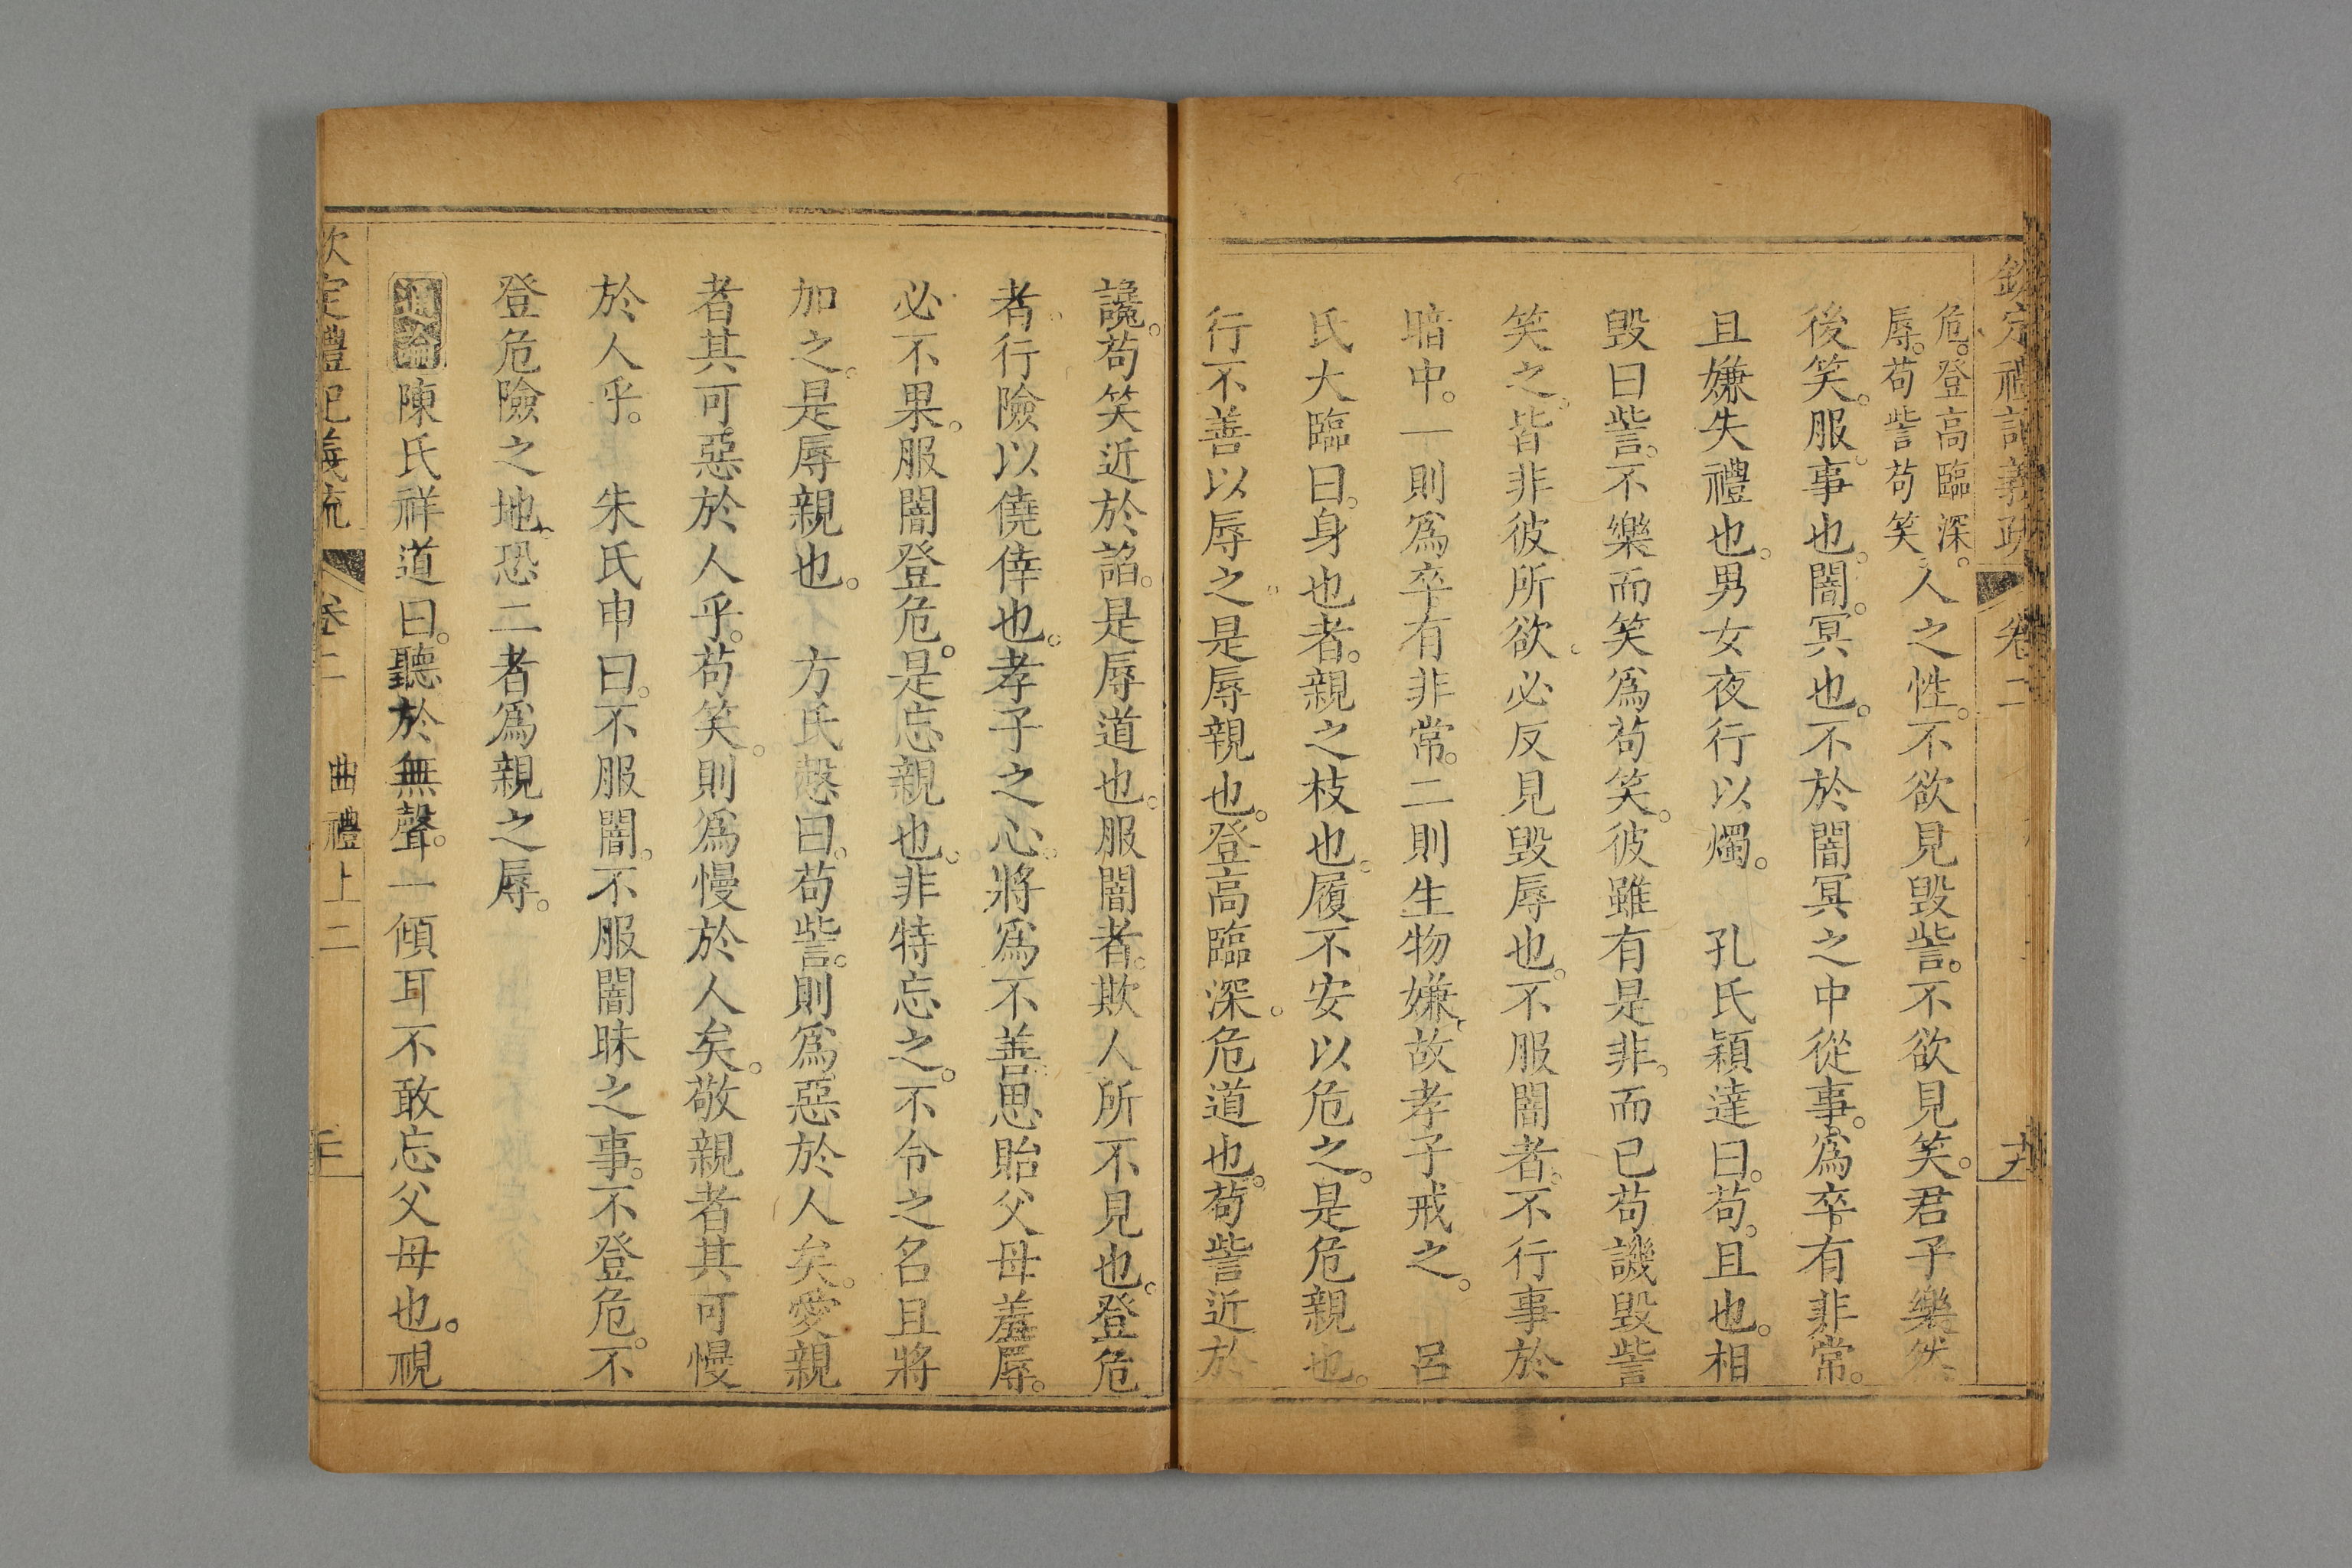 欽定禮記義疏 卷二
危。登高臨深。
辱。苟訾苟笑。
人之性。不欲見毀訾。不欲見笑。君子樂然
後笑。服。事也。闇。冥也。不於闇冥之中從事。爲卒有非常。
且嫌失禮也。男女夜行以燭。 孔氏穎達曰。苟。且也。相
毀曰訾。不樂而笑爲苟笑。彼雖有是非。而已苟譏毀訾
笑之。皆非彼所欲。必反見毀辱也。不服闇者。不行事於
暗中。一則爲卒有非常。二則生物嫌。故孝子戒之。 呂
氏大臨曰。身也者。親之枝也。履不安以危之。是危親也。
行不善以辱之。是辱親也。登高臨深。危道也。苟訾近於
讒。苟笑近於諂。是辱道也。服闇者。欺人所不見也。登危
者。行險以僥倖也。孝子之心。將爲不善。思貽父母羞辱。
必不果。服闇登危。是忘親也。非特忘之。不令之名且將
加之。是辱親也。 方氏慤曰。苟訾。則爲惡於人矣。愛親
者其可惡於人乎。苟笑。則爲慢於人矣。敬親者其可慢
於人乎。 朱氏申曰。不服闇。不服闇昧之事。不登危。不
登危險之地。恐二者爲親之辱。
通論陳氏祥道曰。聽於無聲。一傾耳不敢忘父母也。視
欽定禮記義疏 卷二 曲禮上二